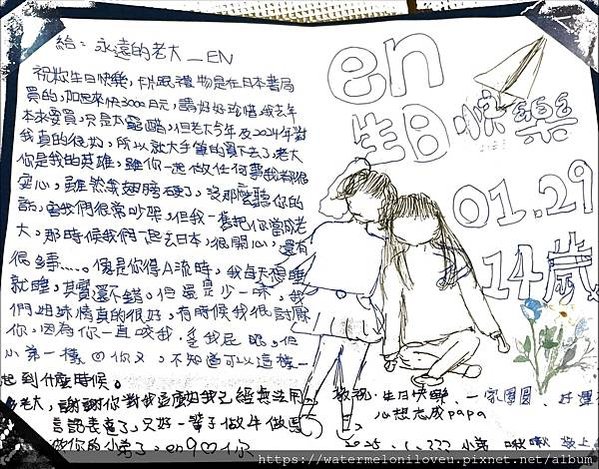 給：永遠的老大_EN
祝你生日快樂，卡跟禮物是在日本書局
買的，加起來快3000日元，請好好珍惜 我去年
本來要買，只是太 ，但老大今年及2024年對
我真的很好，所以就大手筆的買下去了，老大
你是我的英雄，跟你一起做任何事我都很
安心，雖然我翅膀硬了，沒那麼聽你的
話，害我們很常吵架，但我一直把你當成老
大，那時候我們一起去日本，很開心，還有
很多事……，像是你得A流時，我每天很
就睡，其實還不錯。但還是少一味，我
們姐妹情真的很好，有時候我很討厭
你，因為你一直吱我，
小弟一樣 你 ，不知道可以這樣一
起到什麼時候。
老大，謝謝你對我這麼好我已經無法用
言語表達了，只好一輩子做牛做
做你的小弟了，en 9 你
en
生日快樂
01.29
14歲
敬祝：生日快樂，一家團圓，好運
心想志成papa
小弟 啾啾 敬上
https://watermeloniloveu.pixnet.net/album